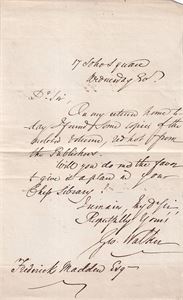 17 Soho Square
Wednesday Eve
Dr Sir
On my return home to
day I found some copies of the
enclosed volume, sent from
the Publishers.
Will you do me the favor
to give it a place in your
Chess Library?
I remain, My Dr Sir
Respectfully Yours
Geo Walker
Frederick Madden Esq